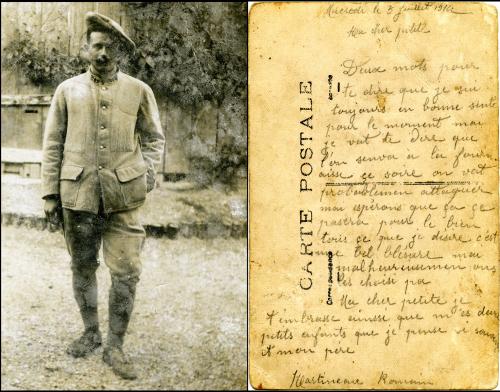 Mercredi le 5 Juillet 1916
Ma cher petite
Deux mots pour
te dire que je sui
toujours en bonne sent
pour le moment mai
je vait te dire que
l'on senva a la
ausse ce soire on vat
probablement attaquer
mai esperons que ça ce
pasera pour le bien
tous ce que je désire c'est
une bel blesure mai
malheureusement on
les choisi pa
Ma cher petite je
t'embrasse ainsse que m'es deux
petits enfants que je pense i
et mon père
Martineau Romain
CARTE POSTALE
Correspondance